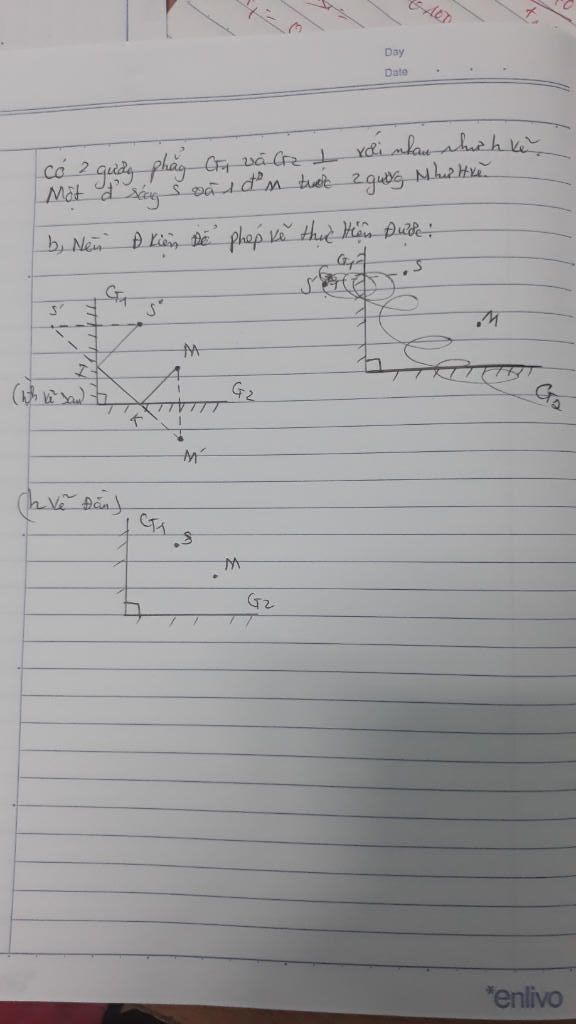 Day
Date
Có 2 gương phẳg G1 và G2 ⊥ với nhau như h vẽ.
Một đ' sáng S và 1 đ' M trước 2 gương Như Hvẽ.
b, Nêu Đ Kiện Để phép vẽ thực Hiện Được:
G1
S'
S
I
M
(hh vẽ sau)
G2
K
M'
G1
S
S'
M
G2
(h vẽ Đán)
G1
S
M
G2
*enlivo